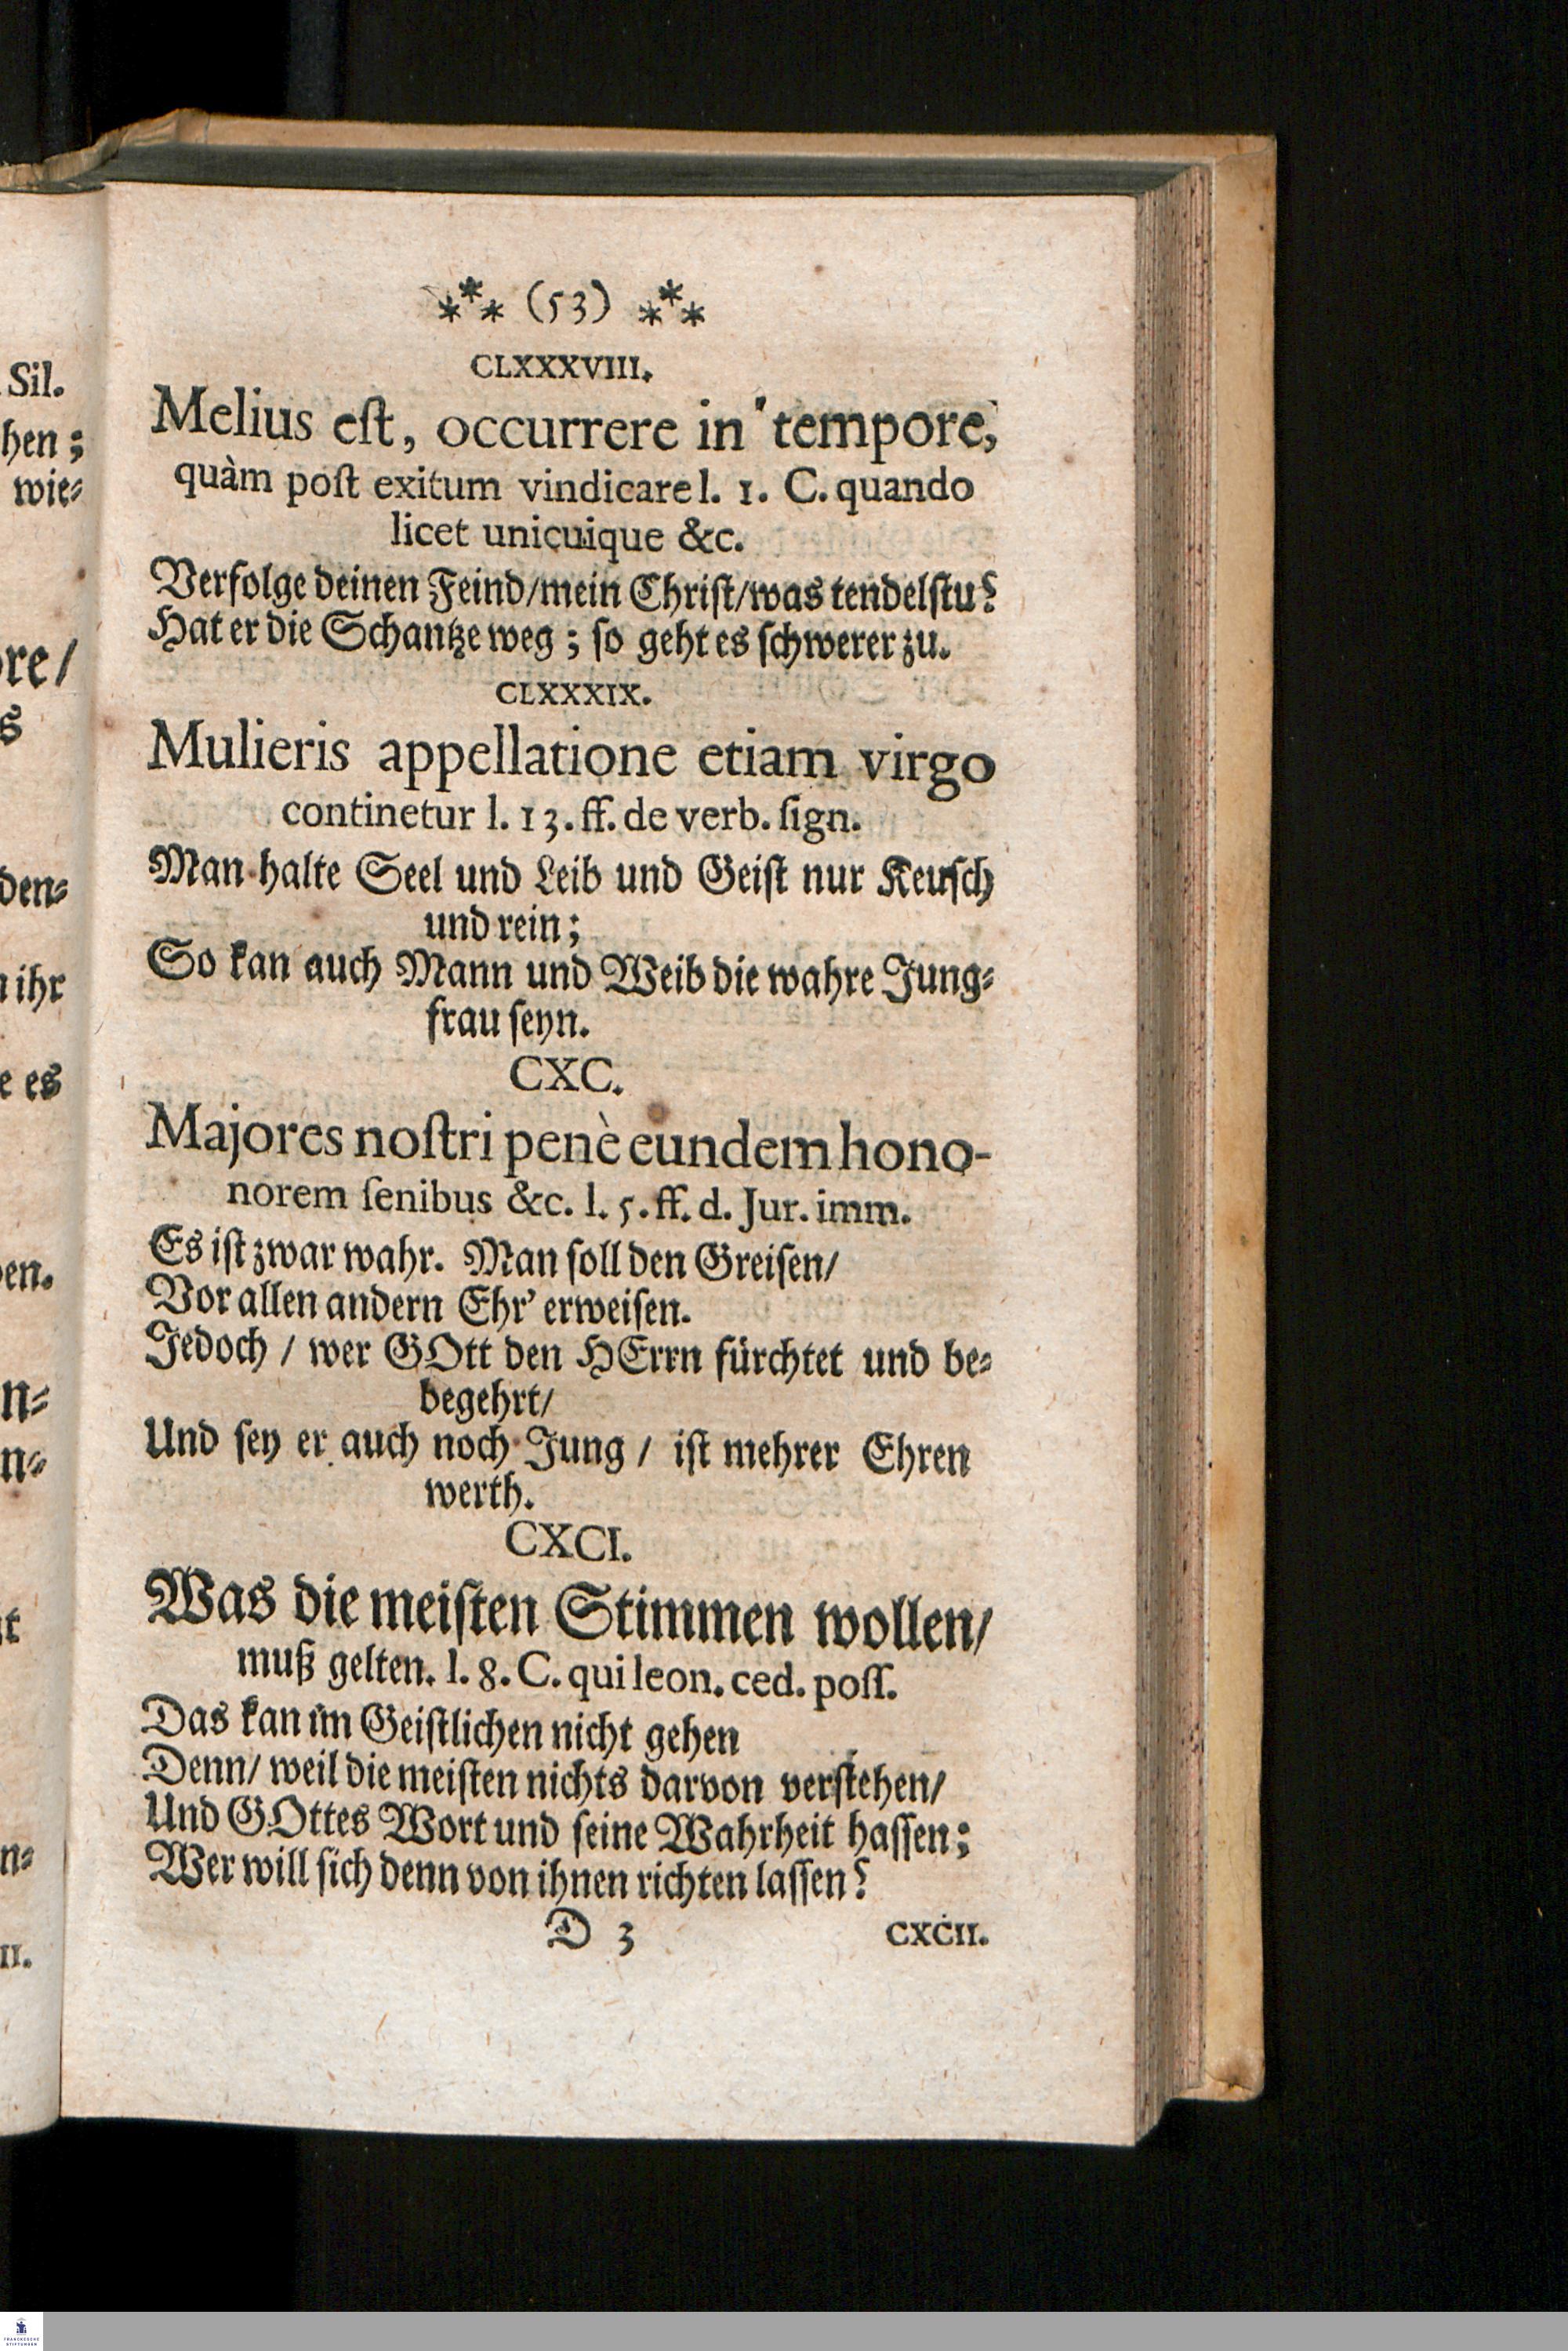 ⁂ (53) ⁂
CLXXXVIII.
Melius eſt, occurrere in tempore,
quàm poſt exitum vindicare l. 1. C. quando
licet unicuique &c.
Verfolge deinen Feind/mein Chriſt/was tendelſtu?
Hat er die Schantze weg; ſo geht es ſchwerer zu.
CLXXXIX.
Mulieris appellatione etiam virgo
continetur l. 13. ff. de verb. ſign.
Man halte Seel und Leib und Geiſt nur Keuſch
und rein;
So kan auch Mann und Weib die wahre Jung⸗
frau ſeyn.
CXC.
Majores noſtri penè eundem hono-
norem ſenibus &c. l. 5. ff. d. Jur. imm.
Es iſt zwar wahr. Man ſoll den Greiſen/
Vor allen andern Ehr' erweiſen.
Jedoch / wer GOtt den HErrn fürchtet und be⸗
begehrt/
Und ſey er auch noch Jung / iſt mehrer Ehren
werth.
CXCI.
Was die meiſten Stimmen wollen/
muß gelten. l. 8. C. qui leon. ced. poſſ.
Das kan im Geiſtlichen nicht gehen
Denn/ weil die meiſten nichts darvon verſtehen/
Und GOttes Wort und ſeine Wahrheit haſſen;
Wer will ſich denn von ihnen richten laſſen?
D 3 CXCII.
Sil.
hen;
wie⸗
re/
s
den⸗
ihr
e es
en.
n⸗
n⸗
t
n⸗
II.
FRANCKESCHE
STIFTUNGEN